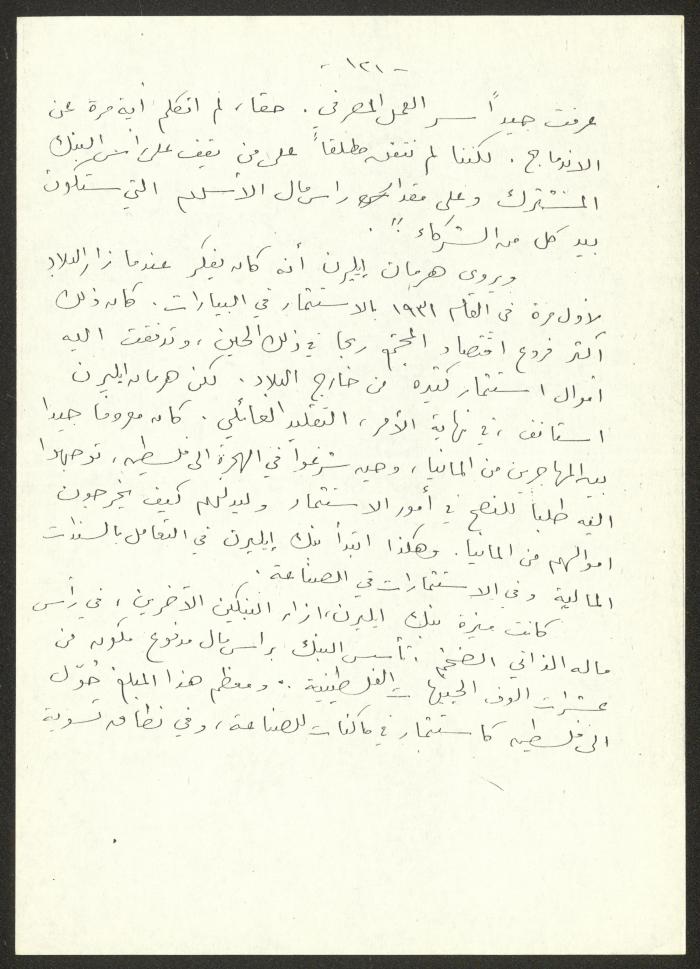 - ١٢١ -
عرفت جيداً سر العمل المصرفي. حقا، لم اتكلم أية مرة عن
الاندماج. لكننا لم نتفق مطلقاً على من يقف على رأس البنك
المشترك وعلى مقدار راس مال الأسهم التي ستكون
بيد كل من الشركاء".
ويروي هرمان إيلرن أنه كان يفكر عندما زار البلاد
لأول مرة في العام ١٩٣١ بالاستثمار في البيارات. كان ذلك
أكثر فروع اقتصاد المجتمع ربحا في ذلك الحين، وتدفقت اليه
اموال استثمار كثيرة من خارج البلاد. لكن هرمان ايلرن
استأنف، في نهاية الأمر، التقليد العائلي. كان معروفا جيدا
بين المهاجرين من المانيا، وحين شرعوا في الهجرة الى فلسطين، توجهوا
اليه طلباً للنصح في أمور الاستثمار وليدلهم كيف يخرجون
اموالهم من المانيا. وهكذا ابتدأ بنك إيلرن في التعامل بالسندات
المالية وفي الاستثمارات في الصناعة.
كانت ميزة بنك ايلرن، ازاء البنكين الآخرين، في رأس
ماله الذاتي الضخم. تأسس البنك براس مال مدفوع مكون من
عشرات الوف الجنيهات الفلسطينية. ومعظم هذا المبلغ حُوّل
الى فلسطين كاستثمار في ماكنات للصناعة، وفي نطاق تسوية